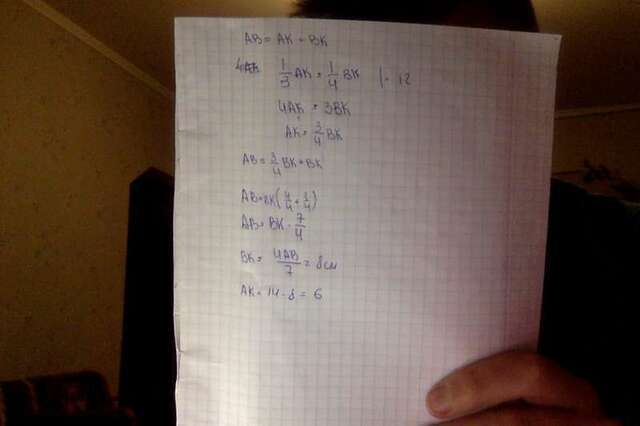 AB = AK + BK
1/3 AK = 1/4 BK | · 12
4AK = 3BK
AK = 3/4 BK
AB = 3/4 BK + BK
AB = BK (4/4 + 3/4)
AB = BK · 7/4
BK = 4AB/7 = 8см
AK = 14 - 8 = 6